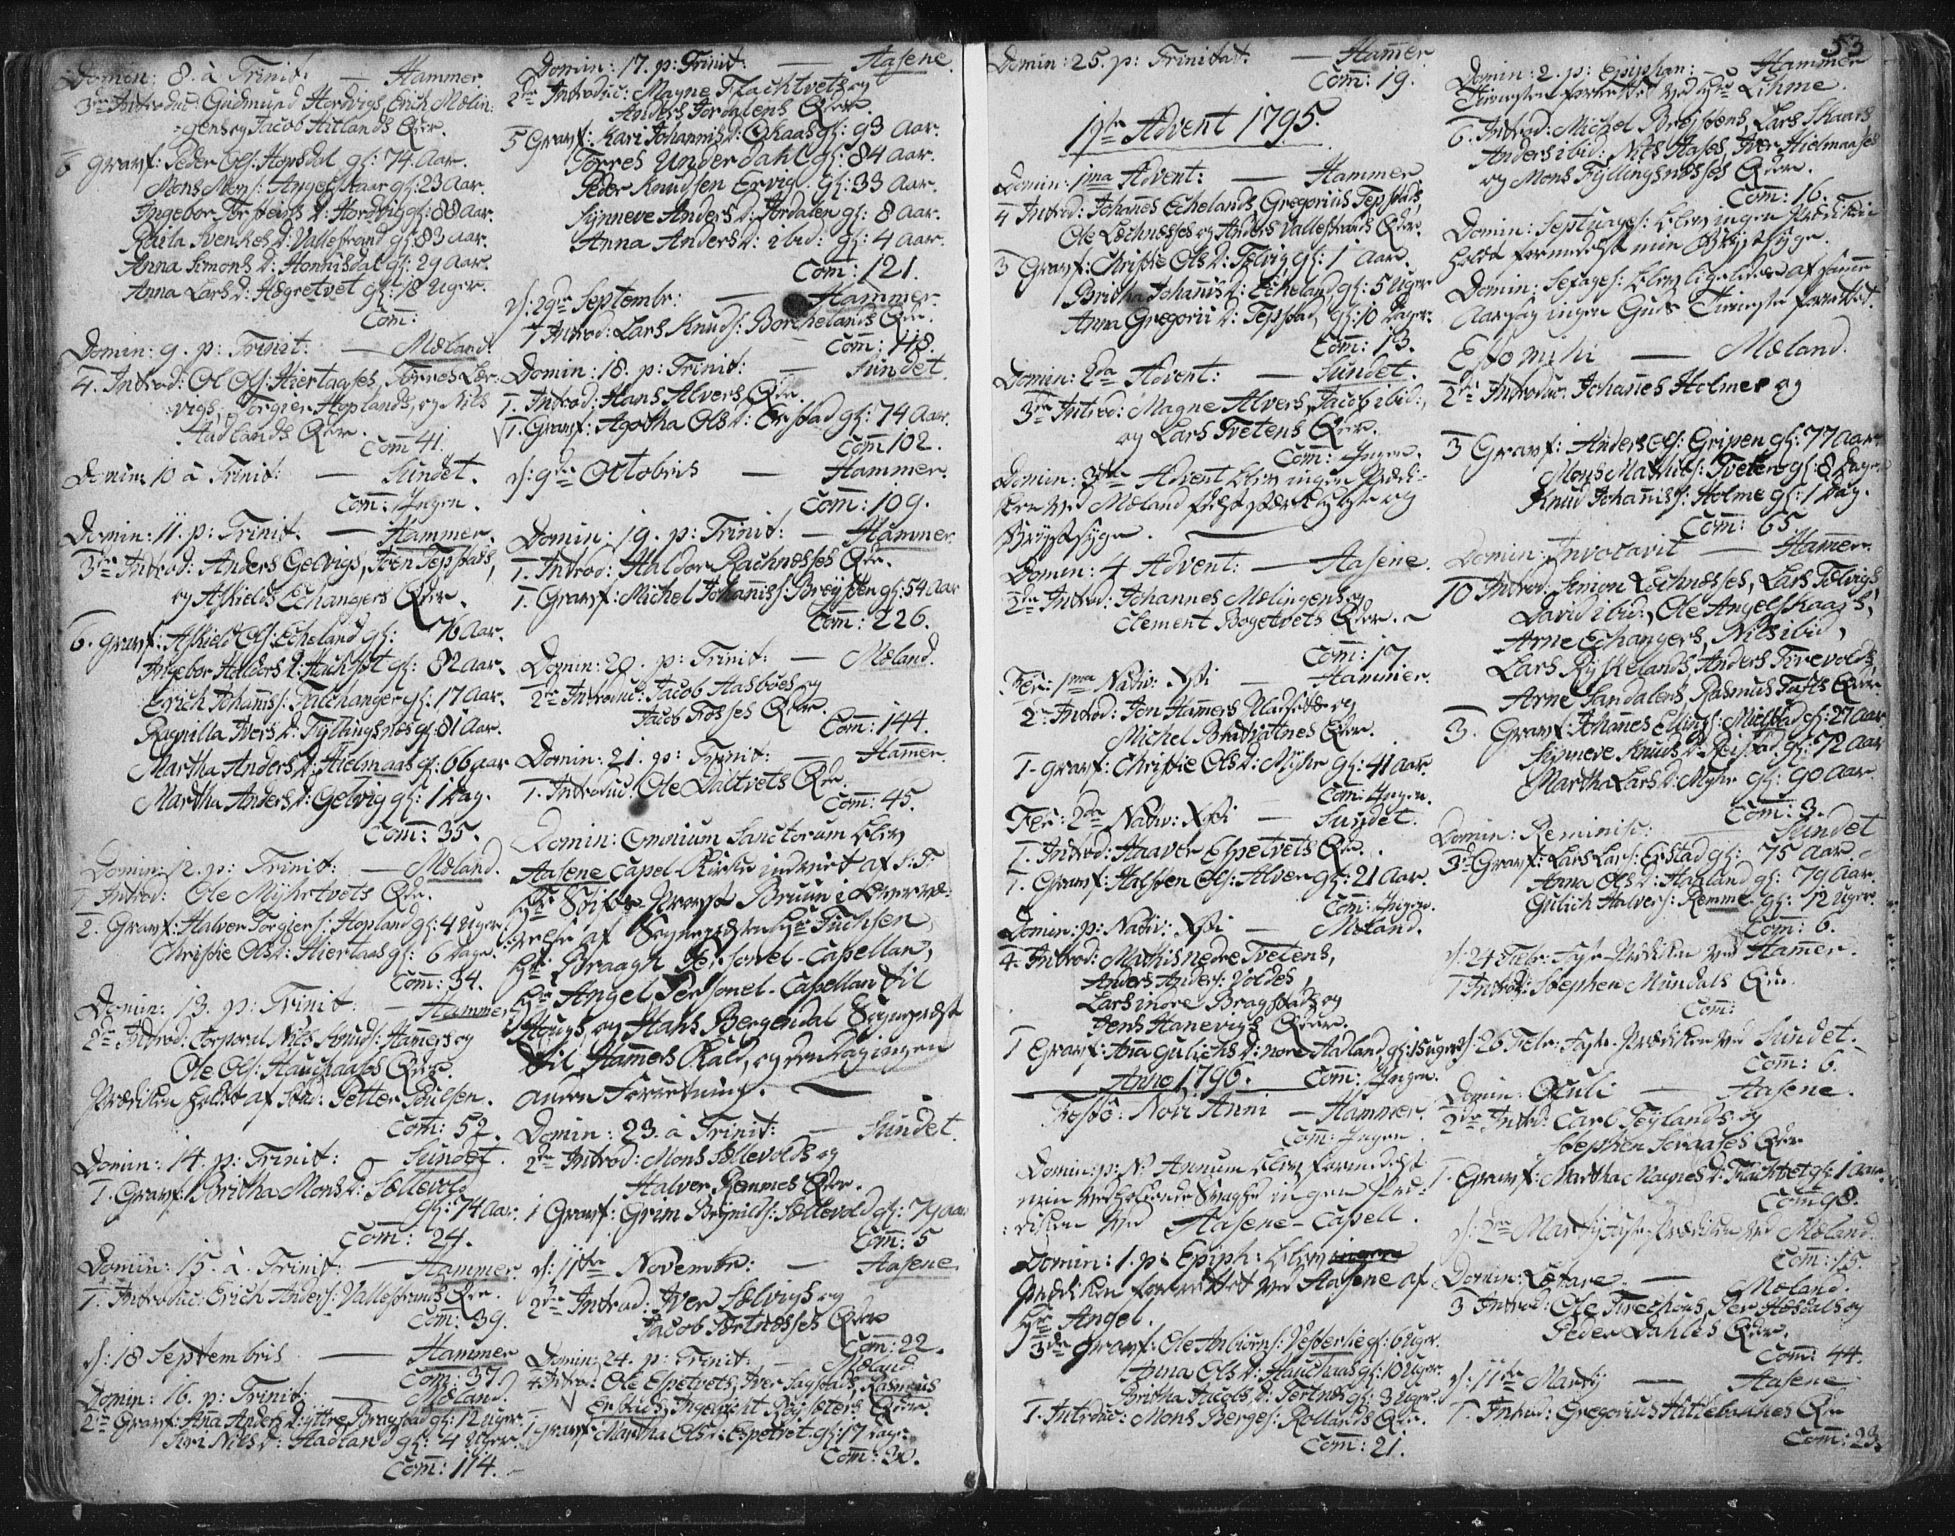 Domin: 8. à Trinit: — Hammer
3de Introduc: Gudmund Hordvigs, Erich Mælin-
gens og Jacob Hitlands Qvr.
6 Gravf: Peder Ols: Hopsdal gl: 74 Aar.
Mons Mons: Angelskaar gl: 23 Aar.
Ingebor Torsteins D: Hordvig gl: 88 Aar.
Raila Svenkes D: Vallestrand gl: 83 Aar.
Anna Simons D: Homnisdal gl: 29 Aar.
Anna Lars D: Hægretvet gl: 18 Uger.
Com:
Domin: 9. p: Trinit: — Mæland.
4. Introd: Ol Ols: Hiertaases, Torres Lær-
vigs, Torgier Hoplands, og Nils
Aadlands Qvr.
Com: 41.
Domin: 10 à Trinit: — Sundet.
Com: Ingen.
Domin: 11. p: Trinit. — Hammer.
3de Introd: Anders Gelvigs, Iven Tepstads,
og Askields Echangers Qvr.
6. Graaf: Askield Ols: Echeland gl: 76 Aar.
Ingebor Haldors D: Hauchøst gl: 82 Aar.
Erich Johannis: Talchanger gl: 17 Aar.
Ragnilla Ivers D: Fyllingsnes gl: 81 Aar.
Martha Anders D: Hielmaas gl: 66 Aar
Martha Anders D: Gelvig gl: 1 Dag.
Com: 35.
Domin: 12. p: Trinit: — Mæland.
1 Introd: Ole Myhrtvets Qvr.
2. Graaf: Halver Torgiers: Hopland gl: 4 Uger;
Christie Ols D: Hiertaas gl: 6 Dage.
Com: 34.
Domin: 13. p: Trinit: — Hammer
2de Introd: Corporal Nils Knuds: Hamers og
Ole Ols: Hauchaases Qvr.
Prædiken holdt af Stud: Petter Poulsen.
Com: 52.
Domin: 14. p: Trinit: — Sundet.
1. Graaf: Britha Mons D: Sællevold
gl: 74 Aar.
Com: 24.
Domin: 15. à. Trinit: — Hammer.
1. Introduc: Erich Anders: Vallestrands Qvr.
Com: 39.
d: 18 Septembris — Hammer
Com: 37.
Domin: 16. p: Trinit: — Mæland.
2de Graaf: Anna Anders D: yttre Bragstad gl: 12 Uger.
Siri Nils D: Aadland gl: 4 Uger.
Com: 114.
Domin: 17. p: Trinit: — Aasene.
2de Introduc: Magne Flachtvets og
Anders Jordalens Qvr.
5 Graaf: Kari Johannis D: Ochaas gl: 93 Aar.
Torres Underdahl gl: 84 Aar.
Peder Knudsen Ervig gl: 33 Aar.
Synneve Anders D: Jordalen gl: 8 Aar.
Anna Anders D: ibid: gl: 4 Aar.
Com: 121.
d: 29de Septembr: — Hammer
1 Introd: Lars Knuds: Borchelands Qvr.
Com: 118.
Domin: 18. p: Trinit: — Sundet.
1. Introd: Hans Alvers Qvr.
1. Graaf: Agotha Ols D: Erstad gl: 74 Aar.
Com: 102.
d: 9de Octobris — Hammer.
Com: 109.
Domin: 19. p: Trinit: — Hammer.
1. Introd: Haldor Rachnesses Qvr.
1. Graaf: Michel Johannis: Brøysten gl: 54 Aar
Com: 226.
Domin: 20. p: Trinit: — Mæland.
2de Introduc: Jacob Hasboes og
Jacob Fosses Qvr.
Com: 144.
Domin: 21. p: Trinit: — Hamer.
1. Introduc: Ole Daltvets Qvr.
Com: 45.
Domin: Omnium Sanctorum blev
Aasene Capel-Kirke indviet af S:T:
Hr: Provst Bruun i Overvæ-
relse af Sognepræsten Hr: Tuchsen,
Hr: Braagh Personel-Capellan,
Hr: Angel Personel-Capellan til
Hougs, og Hans Bergendal Sognepræst
til Hamers Kald, og den Dag ingen
anden Forretning.
Domin: 23. à Trinit: — Sundet.
2de Introd: Mons Sællevolds og
Halver Remmes Qvr.
1 Graaf: Grim Brynilds: Sællevold gl: 79 Aar
Com: 5
d: 11te Novembr: — Aasene.
2de Introd: Iver Sælvigs og
Jacob Tertnesses Qvr
Com: 22.
Domin: 24. p: Trinit: — Mæland.
4 Introd: Ole Espetvets, Iver Sagstads, Rasmus
Erbrics, Ingebricht Røysæters Qvr.
1 Graaf: Martha Ols D: Espetvet gl: 17 Dage.
Com: 30.
53
Domin: 25. p: Trinitat: — Hammer
Com: 19.
1ste Advent 1795.
Domin: 1ma Advent: — Hammer
4 Introd: Johannes Echelands, Gregorius Tepstads,
Ole Lochnesses og Anders Vallestrands Qvr.
3 Graaf: Christie Ols D: Telvig gl: 1 Aar.
Britha Johannis D: Echeland gl: 5 Uger
Anna Gregorii D: Tepstad gl: 10 Dager.
Com: 13.
Domin: 2da Advent: — Sundet.
3de Introd: Magne Alvers, Jacob ibid:,
og Lars Tvetens Qvr.
Com: Ingen.
Domin: 3tia Advent blev ingen Prædi-
ken ved Mæland
Brystsyge.
Domin: 4 Advent: — Aasene.
2de Introd: Johannes Mælingens og
Clement Bogetvets Qvr.
Com: 17
Fer: 1ma Nativ: Xsti — Hammer.
2. Introd: Jon Hamers Uladsets og
Michel Bratvatnes Qvr.
1. Graaf: Christie Ols D: Myhr gl: 41 Aar.
Com: Ingen.
Fer: 2da Nativ: Xsti — Sundet.
1. Introd: Haaver Espetvets Qvr.
1. Graaf: Halsten Ols: Alver gl: 21 Aar.
Com: Ingen.
Domin: p: Nativ: Xsti — Mæland.
4. Introd: Mathis nedre Tvetens,
Anders Anders: Voldes,
Lars indre Bragstads og
Jens Hanevigs Qvr.
1 Graaf: Anna Gulichs D: nore Aadland gl: 15 Uger
Anno 1796. Com: Ingen.
Festo: Novi Anni — Hammer.
Com: Ingen.
Domin: p: N: Annum blev formedelst
min vedholdende Svaghed ingen Præ-
diken ved Aasene-Capell.
Domin: 1. p: Epiph: blev ingen
Prædiken forrettet ved Aasene af
Hr Angel.
3de Graaf: Ole Anbiørns: Vesterlie gl: 6 Uger.
Anna Ols D: Hauchaas gl: 10 Uger.
Britha Jacobs D: Tertnes gl: 3 Uger.
1. Introduc: Mons Berges: Rollands Qvr.
Com: 21.
Domin: 2. p: Epiphan: — Hammer
Tienesten forrettet ved Hr Lihme.
6. Introd: Michel Brøystens, Lars Skaars
Anders ibid: Nils Aases, Iver Hielmaases
og Mons Fyllingsnesses Qvr.
Com: 16.
Domin: Septuages: blev ingen Prædiken
holdt formedelst min Brystsyge.
Domin: Sexages: blev ligeledes af samme
Aarsag ingen Guds Tieneste forrettet.
Esto mihi — Mæland.
2de Introduc: Johannes Holmer og
3 Graaf: Anders Ols: Gripen gl: 77 Aar
Mons Mathis: Tveten gl: 8 Dager
Knud Johannis: Holme gl: 1 Dag.
Com: 65
Domin: Invocavit — Hamer.
10 Introd: Simon Lochnesses, Lars Telvigs,
David ibid:, Ole Angelskaars,
Arne Echangers, Nils ibid,
Lars Rylkelands, Anders Tirevolds,
Arne Sandalens, Rasmus Tufts Qvr.
3. Graaf: Johanes Ellings: Mielstad gl: 27 Aar
Synneve Knuds D: gl: 72 Aar
Martha Lars D: Myhr gl: 90 Aar.
Com: 3.
Domin: Reminisc: — Sundet
3de Graaf: Lars Lars: Erstad gl: 75 Aar.
Anna Ols D: Hopland gl: 79 Aar.
Gulich Halvers: Remme gl: 12 Uger
Com: 6.
d: 24 Febr: Faste-Prædiken ved Hamer.
1 Introd: Stephen Mundals Qvr.
Com:
d: 26 Febr: Faste-Prædiken ved Sundet.
Com: 6.
Domin: Oculi — Aasene.
2de Introd: Carl Teylands og
Stephen Soraases Qvr
1. Graaf: Martha Magnes D: Flachtvet gl: 1 Aar.
Com: 90.
d: 2de Martii Faste-Prædiken ved Mæland.
Com: 15.
Domin: Lætare. — Mæland.
3 Introd: Ole Tirechons, Per Hæsdals og
Peder Dahles Qvr.
Com: 44.
d: 11te Martii — Aasene
1. Introd: Gregorius Hillebakkes Qvr
Com: 23.